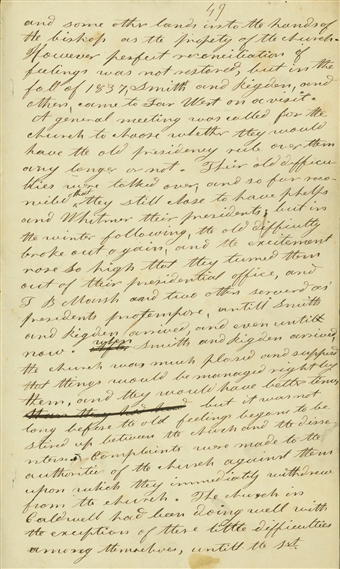 49
and some other lands into the hands of
the bishop as the propety of the church.
However perfect reconciliation of
feelings was not restored, but in the
fall of 1837, Smith and Rigdon, and
others, came to Far West on a visit.
A general meeting was called for the
church to choose whether they would
have the old presidency rule over them
any longer or not. Their old difficu
lties were talked over, and so far reco
nciled that they still chose to have phelps
and Whitmer their presidents; but in
the winter following, the old difficulty
broke out again, and the excitement
rose so high that they turned them
out of their presidential office, and
T B Marsh and two others served as
presidents protempore, untill Smith
and Rigdon arrived, and even untill
now. when Smith and Rigdon arrived,
the church was much plased and supposed
that things would be managed right by
them, and they would have better times
than they had had but it was not
long before the old feelings began to be
stired up between the church and the disse
nters. Complaints were made to the
authorities of the church against them
upon which they immediately withdrew
from the church. The church in
Caldwell had been doing well with
the exception of these little difficulties
among themselves, untill the 1st.